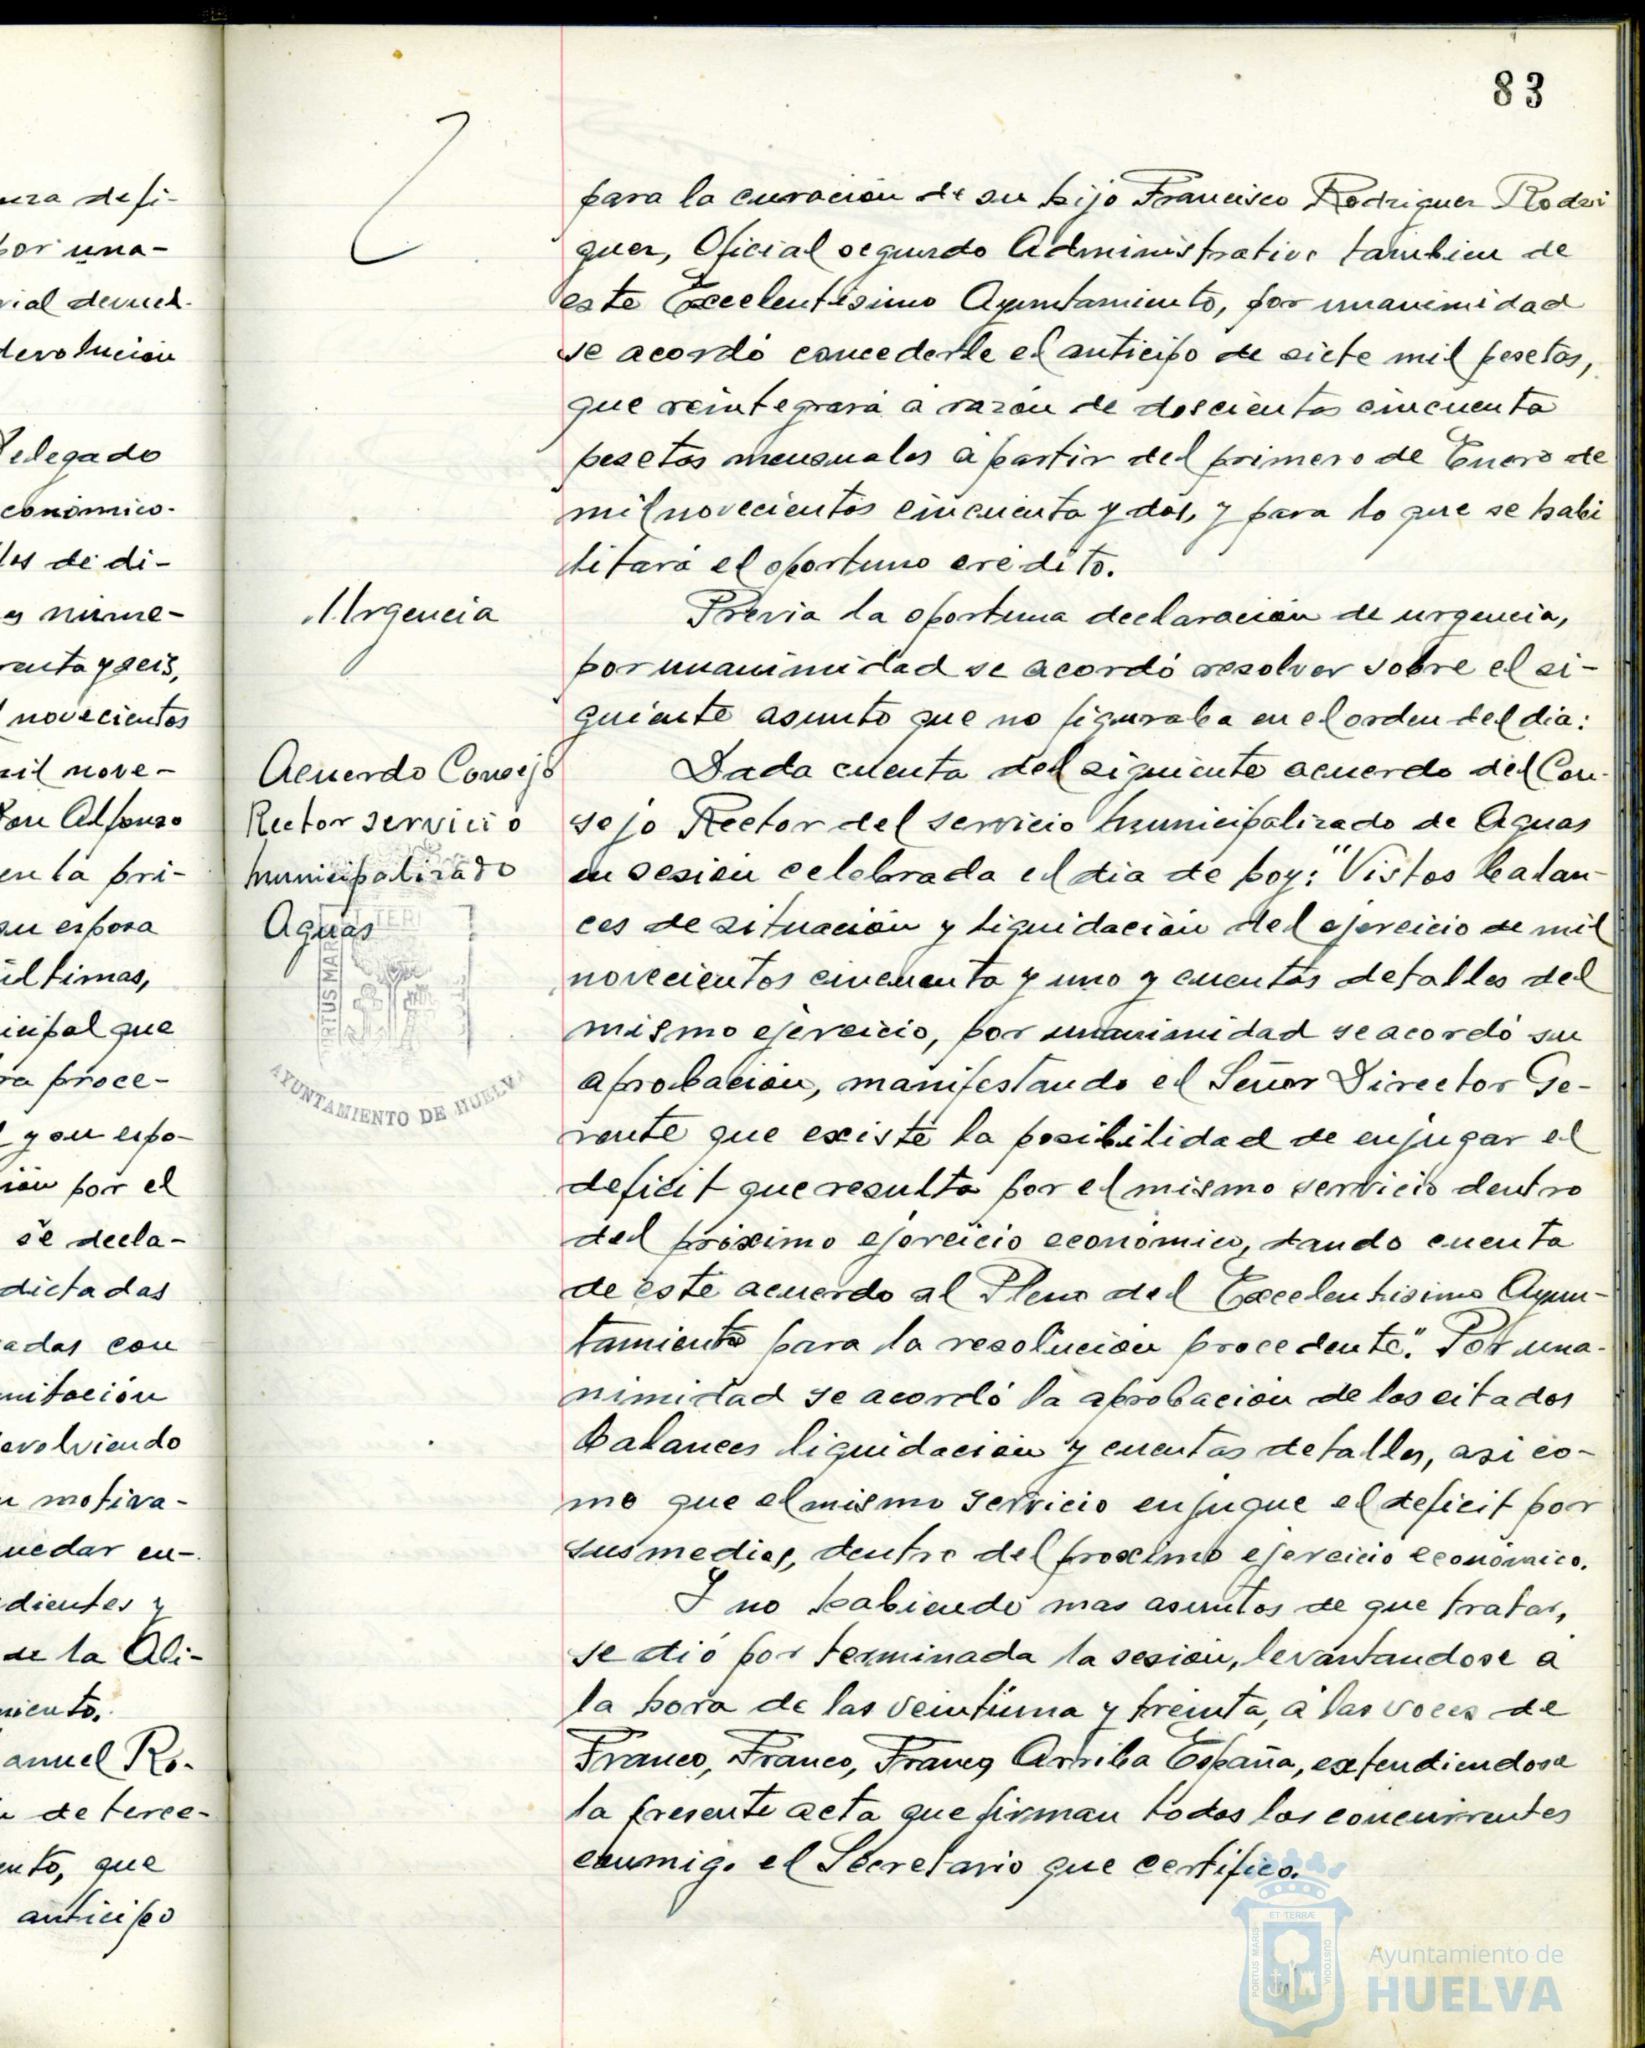 83
para la curación de su hijo Francisco Rodriguez Rodri
guez, Oficial segundo Administrativo tambien de
este Excelentisimo Ayuntamiento, por unanimidad
se acordó concederle el anticipo de siete mil pesetas,
que reintegrará á razón de doscientas cincuenta
pesetas mensuales á partir del primero de Enero de
mil novecientos cincuenta y dos, y para lo que se habi
litará el oportuno crédito.
Urgencia
Previa la oportuna declaración de urgencia,
por unanimidad se acordó resolver sobre el si-
guiente asunto que no figuraba en el orden del dia:
Acuerdo Consejo
Rector servicio
municipalizado
Aguas
Dada cuenta del siguiente acuerdo del Con-
sejo Rector del servicio municipalizado de Aguas
en sesión celebrada el dia de hoy: "Vistos balan-
ces de situación y liquidación del ejercicio de mil
novecientos cincuenta y uno y cuentas detalles del
mismo ejercicio, por unanimidad se acordó su
aprobación, manifestando el Señor Director Ge-
rente que existe la posibilidad de enjugar el
deficit que resulta por el mismo servicio dentro
del próximo ejercicio económico, dando cuenta
de este acuerdo al Pleno del Excelentisimo Ayun-
tamiento para la resolución procedente". Por una-
nimidad se acordó la aprobación de los citados
balances liquidación y cuentas detalles, asi co-
mo que el mismo servicio enjugue el deficit por
sus medios, dentro del proximo ejercicio económico.
Y no habiendo mas asuntos de que tratar,
se dió por terminada la sesión, levantandose á
la hora de las veintiuna y treinta, á las voces de
Franco, Franco, Franco, Arriba España, extendiendose
la presente acta que firman todos los concurrentes
conmigo el Secretario que certifico.
AYUNTAMIENTO DE HUELVA
defi-
por una-
devolución
Delegado
económico-
los de di-
nume-
novecientos
mil nove-
Don Alfonso
en la pri-
su esposa
últimas,
que
proce-
y su espo-
por el
se decla-
dictadas
con
motiva-
en-
y
de la Ali-
Ro-
de terce-
que
anticipo
PORTUS MARIS
ET TERRÆ
CUSTODIA
Ayuntamiento de
HUELVA